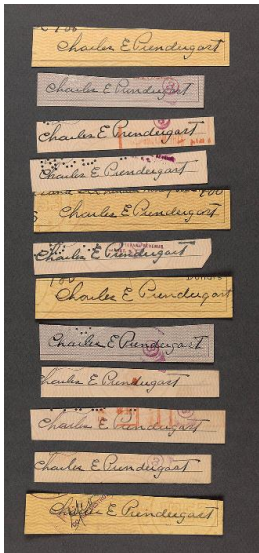 Charles E Prendergast
Charles E Prendergast
Charles E Prendergast
Charles E Prendergast
Charles E Prendergast
Charles E Prendergast
Dollars
Charles E Prendergast
Charles E Prendergast
Charles E Prendergast
Charles E Prendergast
Charles E Prendergast
Charles E Prendergast